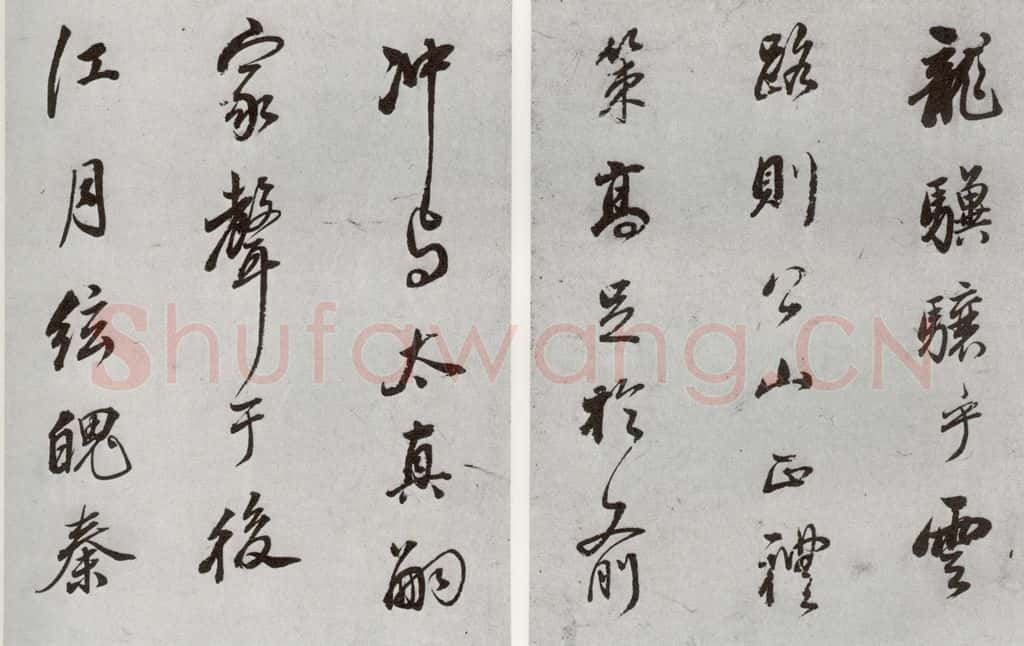 龍驥驤乎雲
路則公山正禮
策高足於前
沖与太真嗣
家聲于後
江月弦魄秦
Shufawang.CN